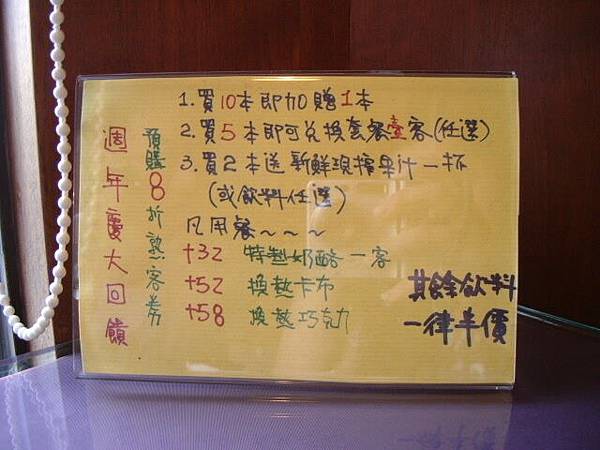 週年慶大回饋
預購8折熟客券
1.買10本即加贈1本
2.買5本即可兌換套餐壹客(任選)
3.買2本送新鮮現榨果汁一杯
(或飲料任選)
凡用餐~~~
+32 特製奶酪一客
+52 換熱卡布
+58 換熱巧克力
其餘飲料
一律半價